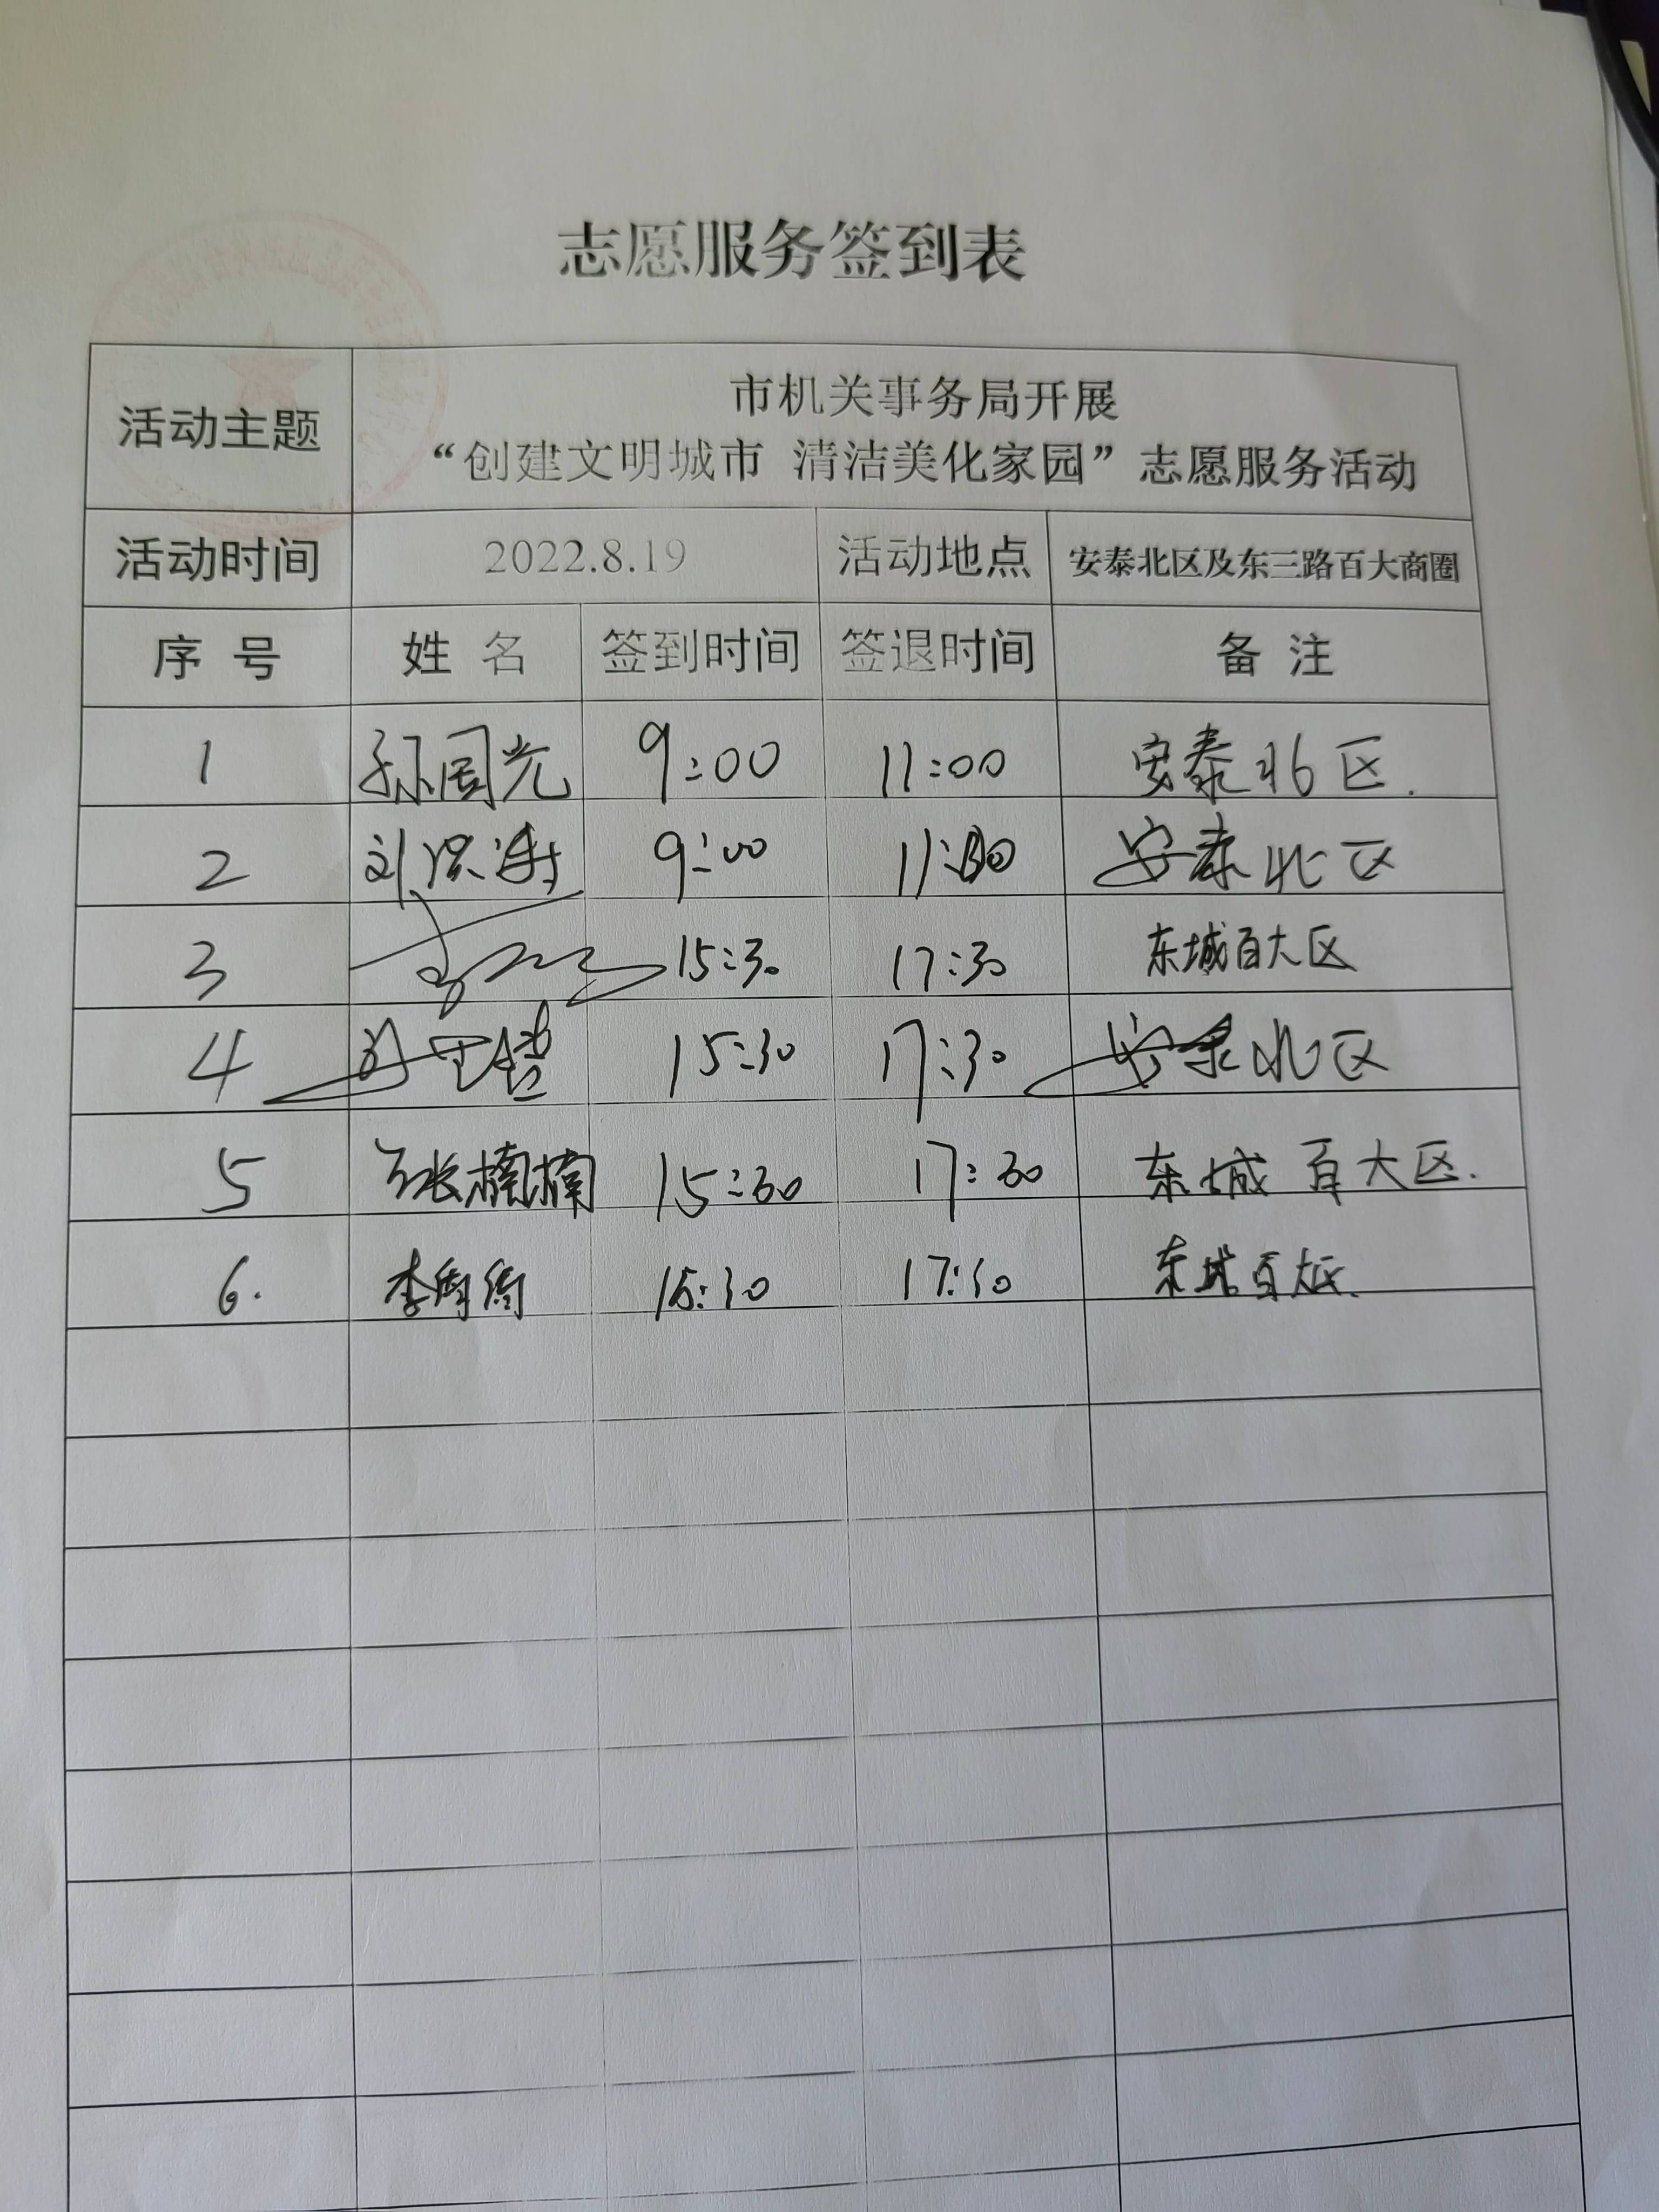 志愿服务签到表
活动主题 市机关事务局开展
“创建文明城市 清洁美化家园”志愿服务活动
活动时间 2022.8.19 活动地点 安泰北区及东三路百大商圈
序号 姓名 签到时间 签退时间 备注
1 孙周光 9:00 11:00 安泰北区.
2 刘洪涛 9:00 11:00 安泰北区
3 15:30 17:30 东城百大区
4 15:30 17:30 安泰北区
5 张楠楠 15:30 17:30 东城百大区.
6. 李 15:30 17:30 东城百大区.